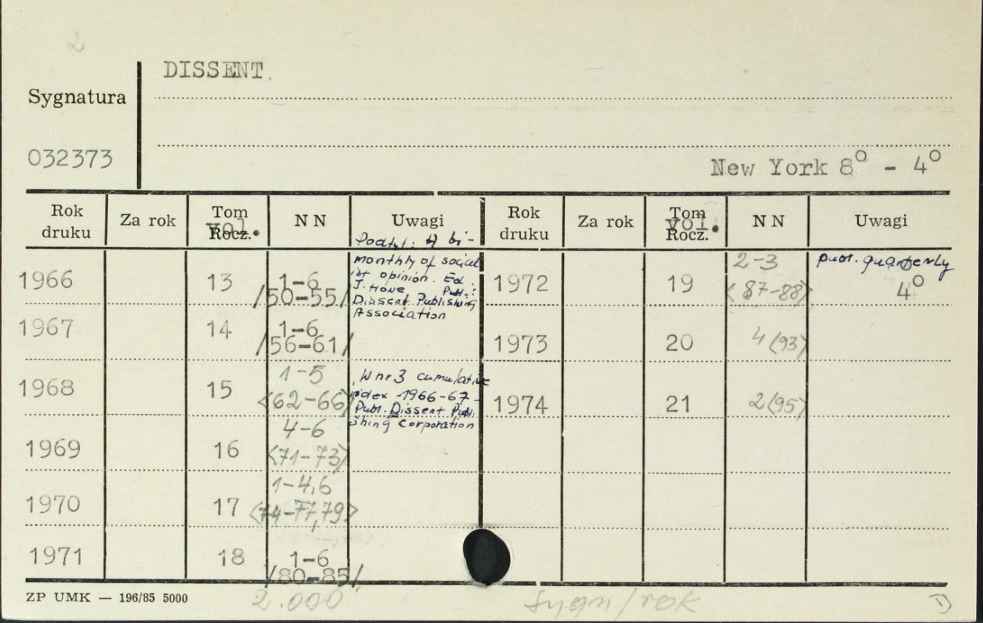 2
DISSENT.
Sygnatura
032373
New York 8° - 4°
Rok druku Za rok Tom Rocz. Vol. NN Uwagi Rok druku Za rok Tom Rocz. Vol. NN Uwagi
1966 13 1-6 /50-55/
Podtyt.: A bi-
monthly of social
ist opinion. Ed.
J. Howe Publ.:
Dissent Publishing
Association
1972 19 2-3 <87-88> publ. quarterly 4°
1967 14 1-6 /56-61/
1973 20 4 (93)
1968 15 1-5 <62-66>
W nr 3 cumulative
index 1966-67-
Publ. Dissent Publi
shing Corporation
1974 21 2(95)
1969 16 4-6 <71-73>
1970 17 1-4,6 <74-77,79>
1971 18 1-6 /80-85/
ZP UMK — 196/85 5000
2.000
Sygn/rok